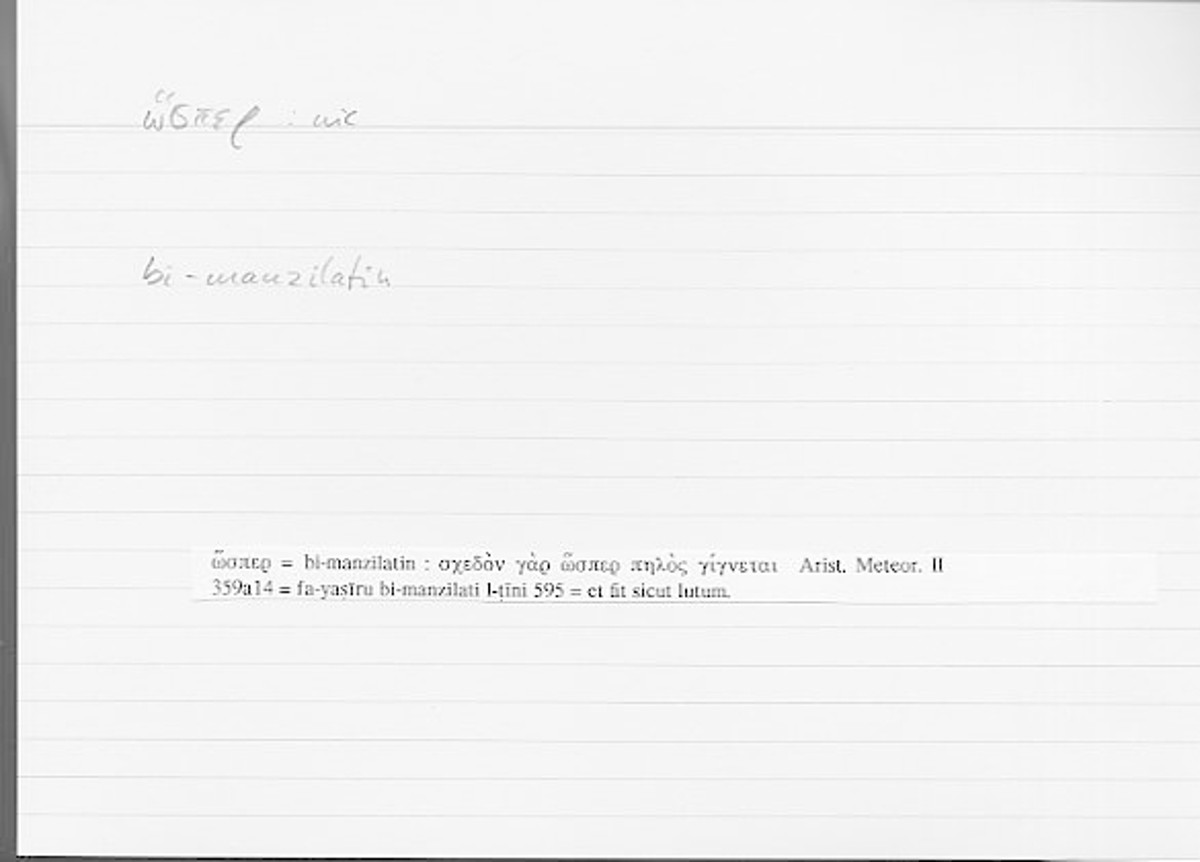 ὥσπερ : wie
bi-manzilatin
ὥσπερ = bi-manzilatin : σχεδὸν γὰρ ὥσπερ πηλὸς γίγνεται Arist. Meteor. II
359a14 = fa-yaṣīru bi-manzilati l-ṭīni 595 = et fit sicut lutum.